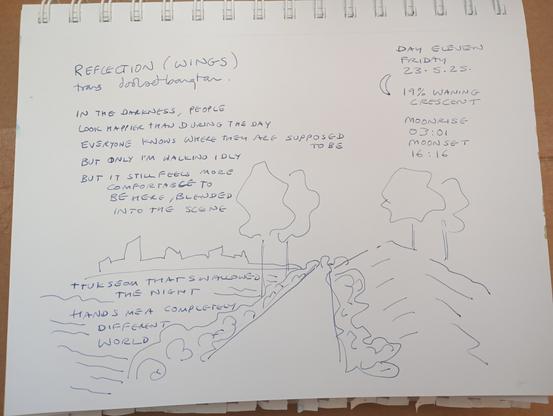 REFLECTION (WINGS)
trans doolsetbangtan.
IN THE DARKNESS, PEOPLE
LOOK HAPPIER THAN DURING THE DAY
EVERYONE KNOWS WHERE THEY ARE SUPPOSED
TO BE
BUT ONLY I'M WALKING IDLY
BUT IT STILL FEELS MORE
COMFORTABLE TO
BE HERE, BLENDED
INTO THE SCENE
TTUKSEOM THAT SWALLOWED
THE NIGHT
HANDS ME A COMPLETELY
DIFFERENT
WORLD
DAY ELEVEN
FRIDAY
23.5.25.
19% WANING
CRESCENT
MOONRISE
03:01
MOONSET
16:16